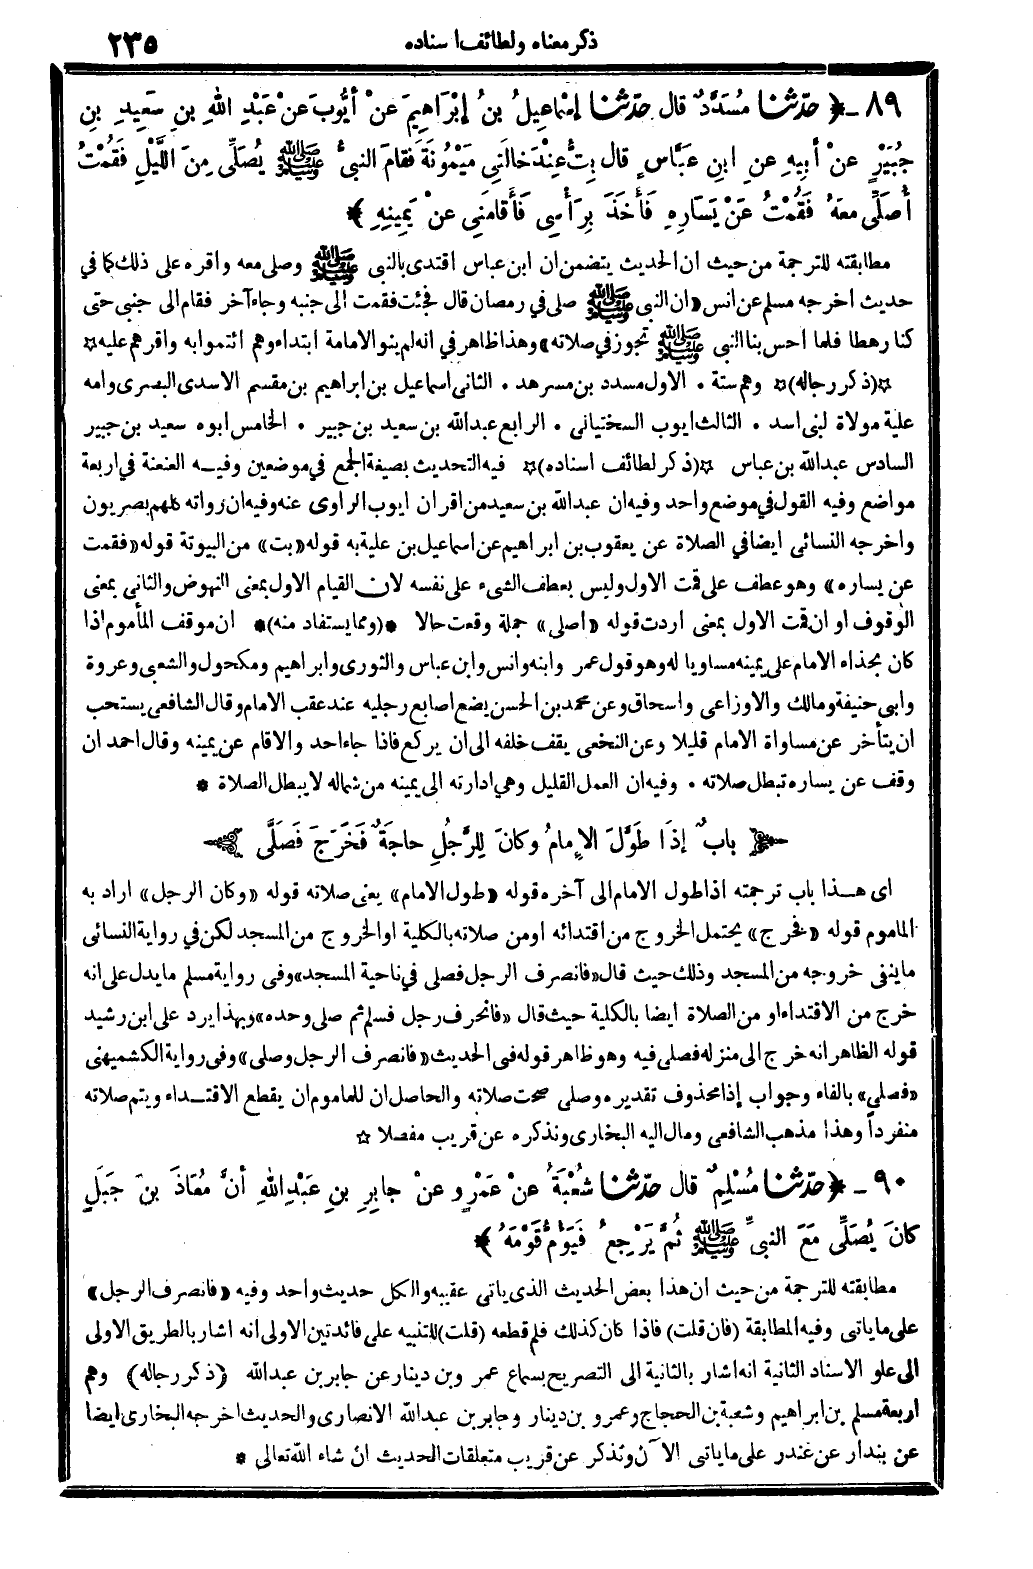 ذكر معناه ولطائف اسناده ٢٣٥
٨٩ ـ ﴿ حدّثنا مُسَدَّدٌ قال حدّثنا إسْماعِيلُ بنُ إبْرَاهِيمَ عَنْ أيُّوبَ عنْ عَبْدِ اللهِ بنِ سَعِيدِ بنِ
جُبَيْرٍ عنْ أبيهِ عنِ ابنِ عَبَّاسٍ قال بِتُّ عِنْدَ خالَتِي مَيْمُونَةَ فَقامَ النبيُّ ﷺ يُصَلِّي مِنَ اللَّيْلِ فَقُمْتُ
أُصَلِّي معَهُ فَقُمْتُ عَنْ يَسَارِهِ فَأخَذَ بِرَأْسِي فَأقامَنِي عنْ يَمِينِهِ ﴾
مطابقته للترجمة من حيث ان الحديث يتضمن ان ابن عباس اقتدى بالنبي ﷺ وصلى معه واقره على ذلك كما في
حديث اخرجه مسلم عن انس «ان النبي ﷺ صلى في رمضان قال فجئت فقمت الى جنبه وجاء آخر فقام الى جنبي حتى
كنا رهطا فلما احس بنا النبي ﷺ تجوز في صلاته» وهذا ظاهر في انه لم ينو الامامة ابتداء وهم ائتموا به واقرهم عليه ☆
☆(ذكر رجاله)☆ وهم ستة . الاول مسدد بن مسرهد . الثاني اسماعيل بن ابراهيم بن مقسم الاسدي البصري وامه
علية مولاة لبني اسد . الثالث ايوب السختياني . الرابع عبدالله بن سعيد بن جبير . الخامس ابوه سعيد بن جبير
السادس عبدالله بن عباس ☆(ذكر لطائف اسناده)☆ فيه التحديث بصيغة الجمع في موضعين وفيه العنعنة في اربعة
مواضع وفيه القول في موضع واحد وفيه ان عبدالله بن سعيد من اقران ايوب الراوي عنه وفيه ان رواته كلهم بصريون
واخرجه النسائي ايضا في الصلاة عن يعقوب بن ابراهيم عن اسماعيل بن علية به قوله «بت» من البيوتة قوله «فقمت
عن يساره» وهو عطف على قمت الاول وليس بعطف الشيء على نفسه لان القيام الاول بمعنى النهوض والثاني بمعنى
الوقوف او ان قمت الاول بمعنى اردت قوله «اصلي» جملة وقعت حالا *(ومما يستفاد منه)* ان موقف المأموم اذا
كان بحذاء الامام على يمينه مساويا له وهو قول عمر وابنه وانس وابن عباس والثوري وابراهيم ومكحول والشعبي وعروة
وابي حنيفة ومالك والاوزاعي واسحاق وعن محمد بن الحسن يضع اصابع رجليه عند عقب الامام وقال الشافعي يستحب
ان يتأخر عن مساواة الامام قليلا وعن النخعي يقف خلفه الى ان يركع فاذا جاء احد والا قام عن يمينه وقال احمد ان
وقف عن يساره تبطل صلاته . وفيه ان العمل القليل وهي ادارته الى يمينه من شماله لا يبطل الصلاة *
﴿ بابٌ إذَا طَوَّلَ الإِمامُ وكانَ لِلرَّجُلِ حاجَةٌ فَخَرَجَ فَصَلَّى ﴾
اى هذا باب ترجمته اذا طول الامام الى آخره قوله «طول الامام» يعني صلاته قوله «وكان الرجل» اراد به
الماموم قوله «فخرج» يحتمل الخروج من اقتدائه او من صلاته بالكلية او الخروج من المسجد لكن في رواية النسائي
ما ينفي خروجه من المسجد وذلك حيث قال «فانصرف الرجل فصلى في ناحية المسجد» وفي رواية مسلم ما يدل على انه
خرج من الاقتداء او من الصلاة ايضا بالكلية حيث قال «فانحرف رجل فسلم ثم صلى وحده» وبهذا يرد على ابن رشيد
قوله الظاهر انه خرج الى منزله فصلى فيه وهو ظاهر قوله في الحديث «فانصرف الرجل وصلى» وفي رواية الكشميهني
«فصلى» بالفاء وجواب إذا محذوف تقديره وصلى صحت صلاته والحاصل ان للماموم ان يقطع الاقتداء ويتم صلاته
منفرداً وهذا مذهب الشافعي ومال اليه البخاري ونذكره عن قريب مفصلا ☆
٩٠ ـ ﴿ حدّثنا مُسْلِمٌ قال حدّثنا شُعْبَةُ عنْ عَمْرٍو عنْ جابِرِ بنِ عَبْدِ اللهِ أنَّ مُعَاذَ بنَ جَبَلٍ
كانَ يُصَلِّي مَعَ النبيِّ ﷺ ثُمَّ يَرْجِعُ فَيَؤُمُّ قَوْمَهُ ﴾
مطابقته للترجمة من حيث ان هذا بعض الحديث الذي ياتي عقيبه والكل حديث واحد وفيه «فانصرف الرجل»
على ما ياتي وفيه المطابقة (فان قلت) فاذا كان كذلك فلم قطعه (قلت) للتنبيه على فائدتين الاولى انه اشار بالطريق الاولى
الى علو الاسناد الثانية انه اشار بالثانية الى التصريح بسماع عمرو بن دينار عن جابر بن عبدالله (ذكر رجاله) وهم
اربعة مسلم بن ابراهيم وشعبة بن الحجاج وعمرو بن دينار وجابر بن عبدالله الانصاري والحديث اخرجه البخاري ايضا
عن بندار عن غندر على ما ياتي الآن ونذكر عن قريب متعلقات الحديث ان شاء الله تعالى *